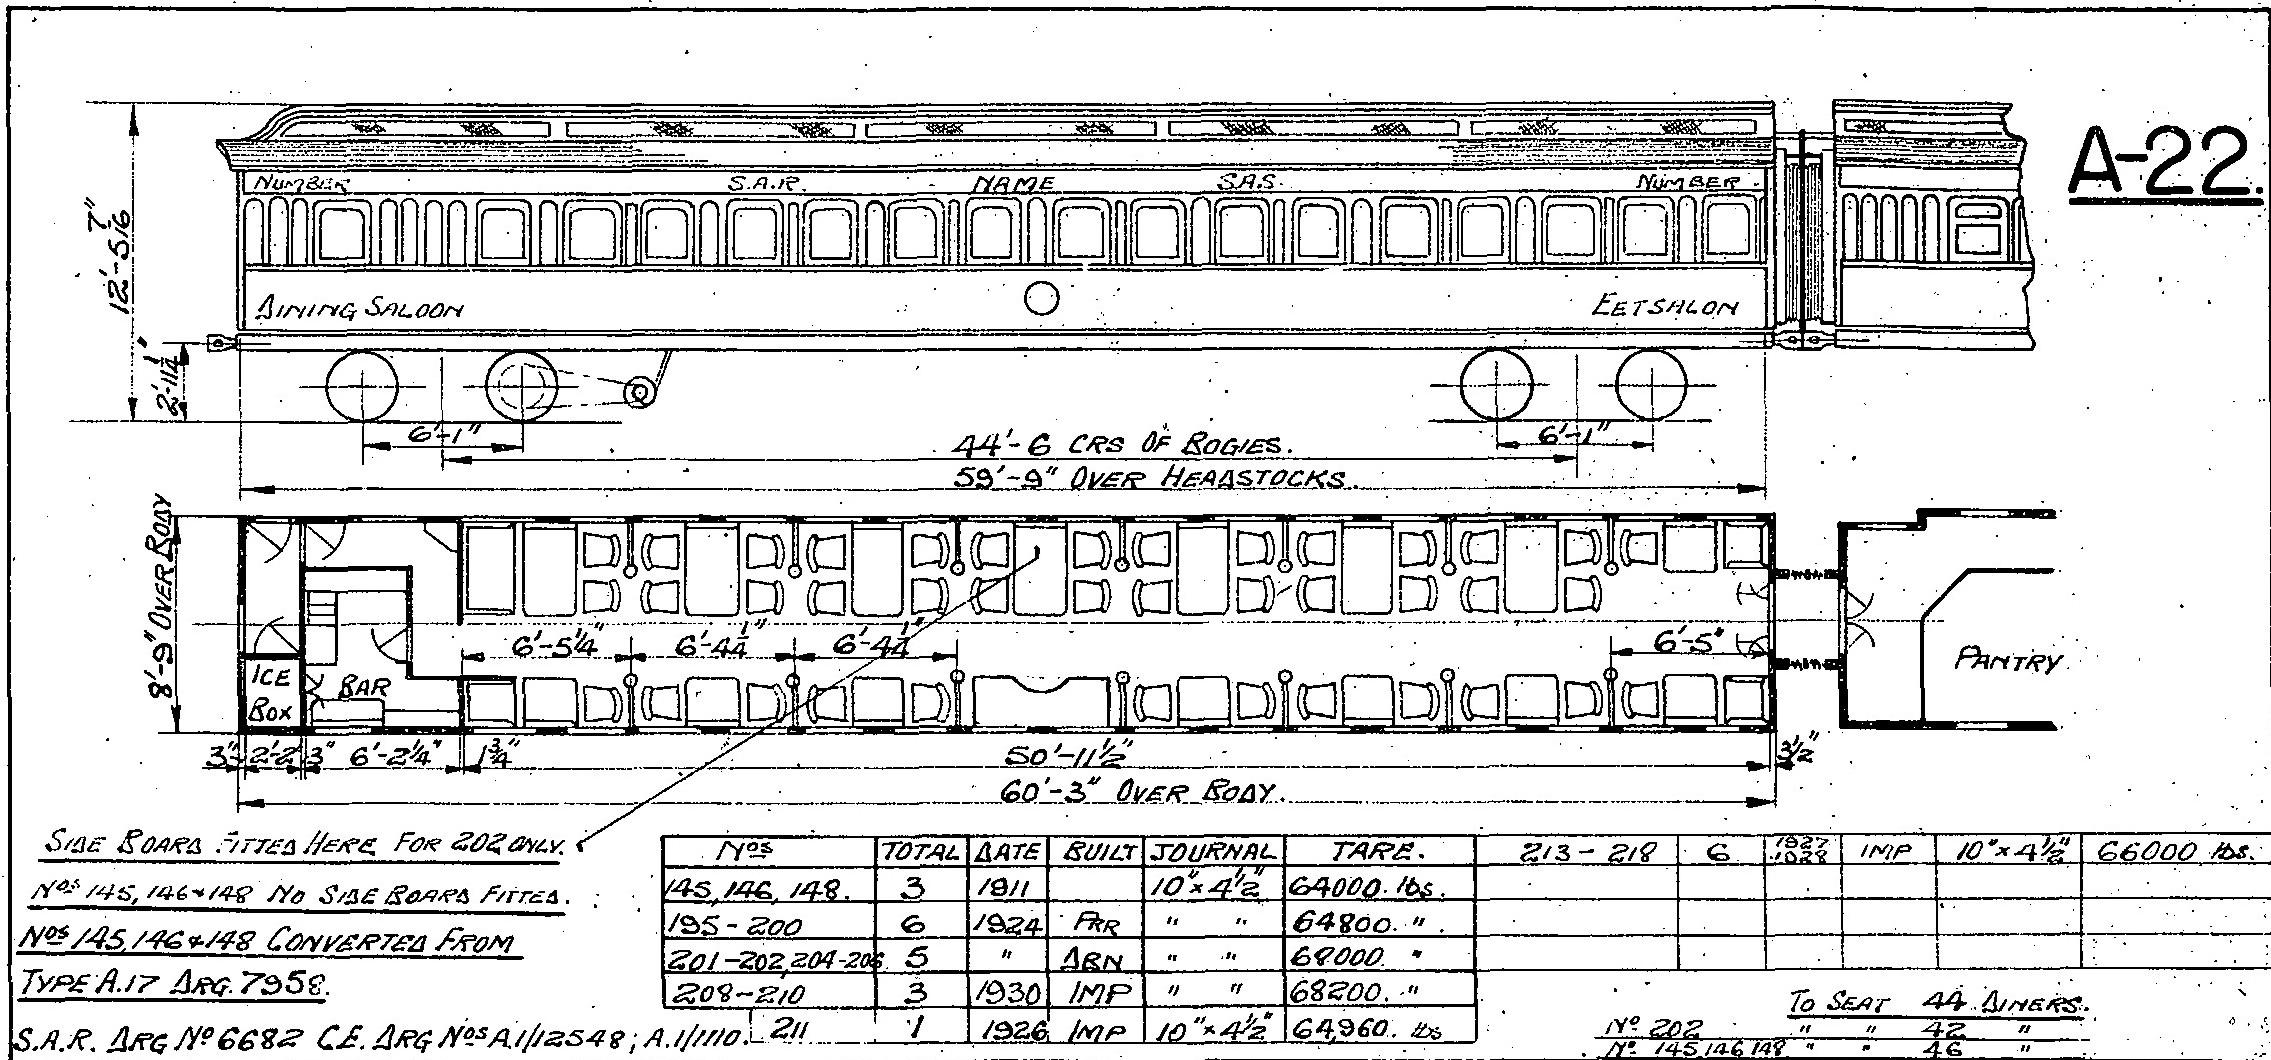 A-22.
NUMBER S.A.R. NAME S.A.S. NUMBER.
12'-5 7/16"
DINING SALOON EETSALON
2'-11 1/4"
6'-1" 6'-1"
44'-6 CRS OF BOGIES.
59'-9" OVER HEADSTOCKS.
8'-9" OVER BODY
6'-5 1/4" 6'-4 1/4" 6'-4 1/4" 6'-5"
ICE BOX
BAR
PANTRY.
3" 2'-2" 3" 6'-2 1/4" 1 3/4" 50'-11 1/2" 3 1/2"
60'-3" OVER BODY.
SIDE BOARD FITTED HERE FOR 202 ONLY.
Nos 145, 146 & 148 NO SIDE BOARD FITTED.
Nos 145, 146 & 148 CONVERTED FROM
TYPE A.17 DRG. 7958.
S.A.R. DRG No 6682 C.E. DRG Nos A.1/12548; A.1/1110.
Nos TOTAL DATE BUILT JOURNAL TARE.
145, 146, 148. 3 1911 10" x 4½" 64000. lbs.
195-200 6 1924 PRR " " 64800. "
201-202, 204-206 5 " DBN " " 68000. "
208-210 3 1930 IMP " " 68200. "
211 1 1926 IMP 10" x 4½" 64,960. lbs
213-218 6 1927 1928 IMP 10" x 4½" 66000 lbs.
TO SEAT 44 DINERS.
No 202 " " 42 "
No. 145, 146, 148 " " 46 "